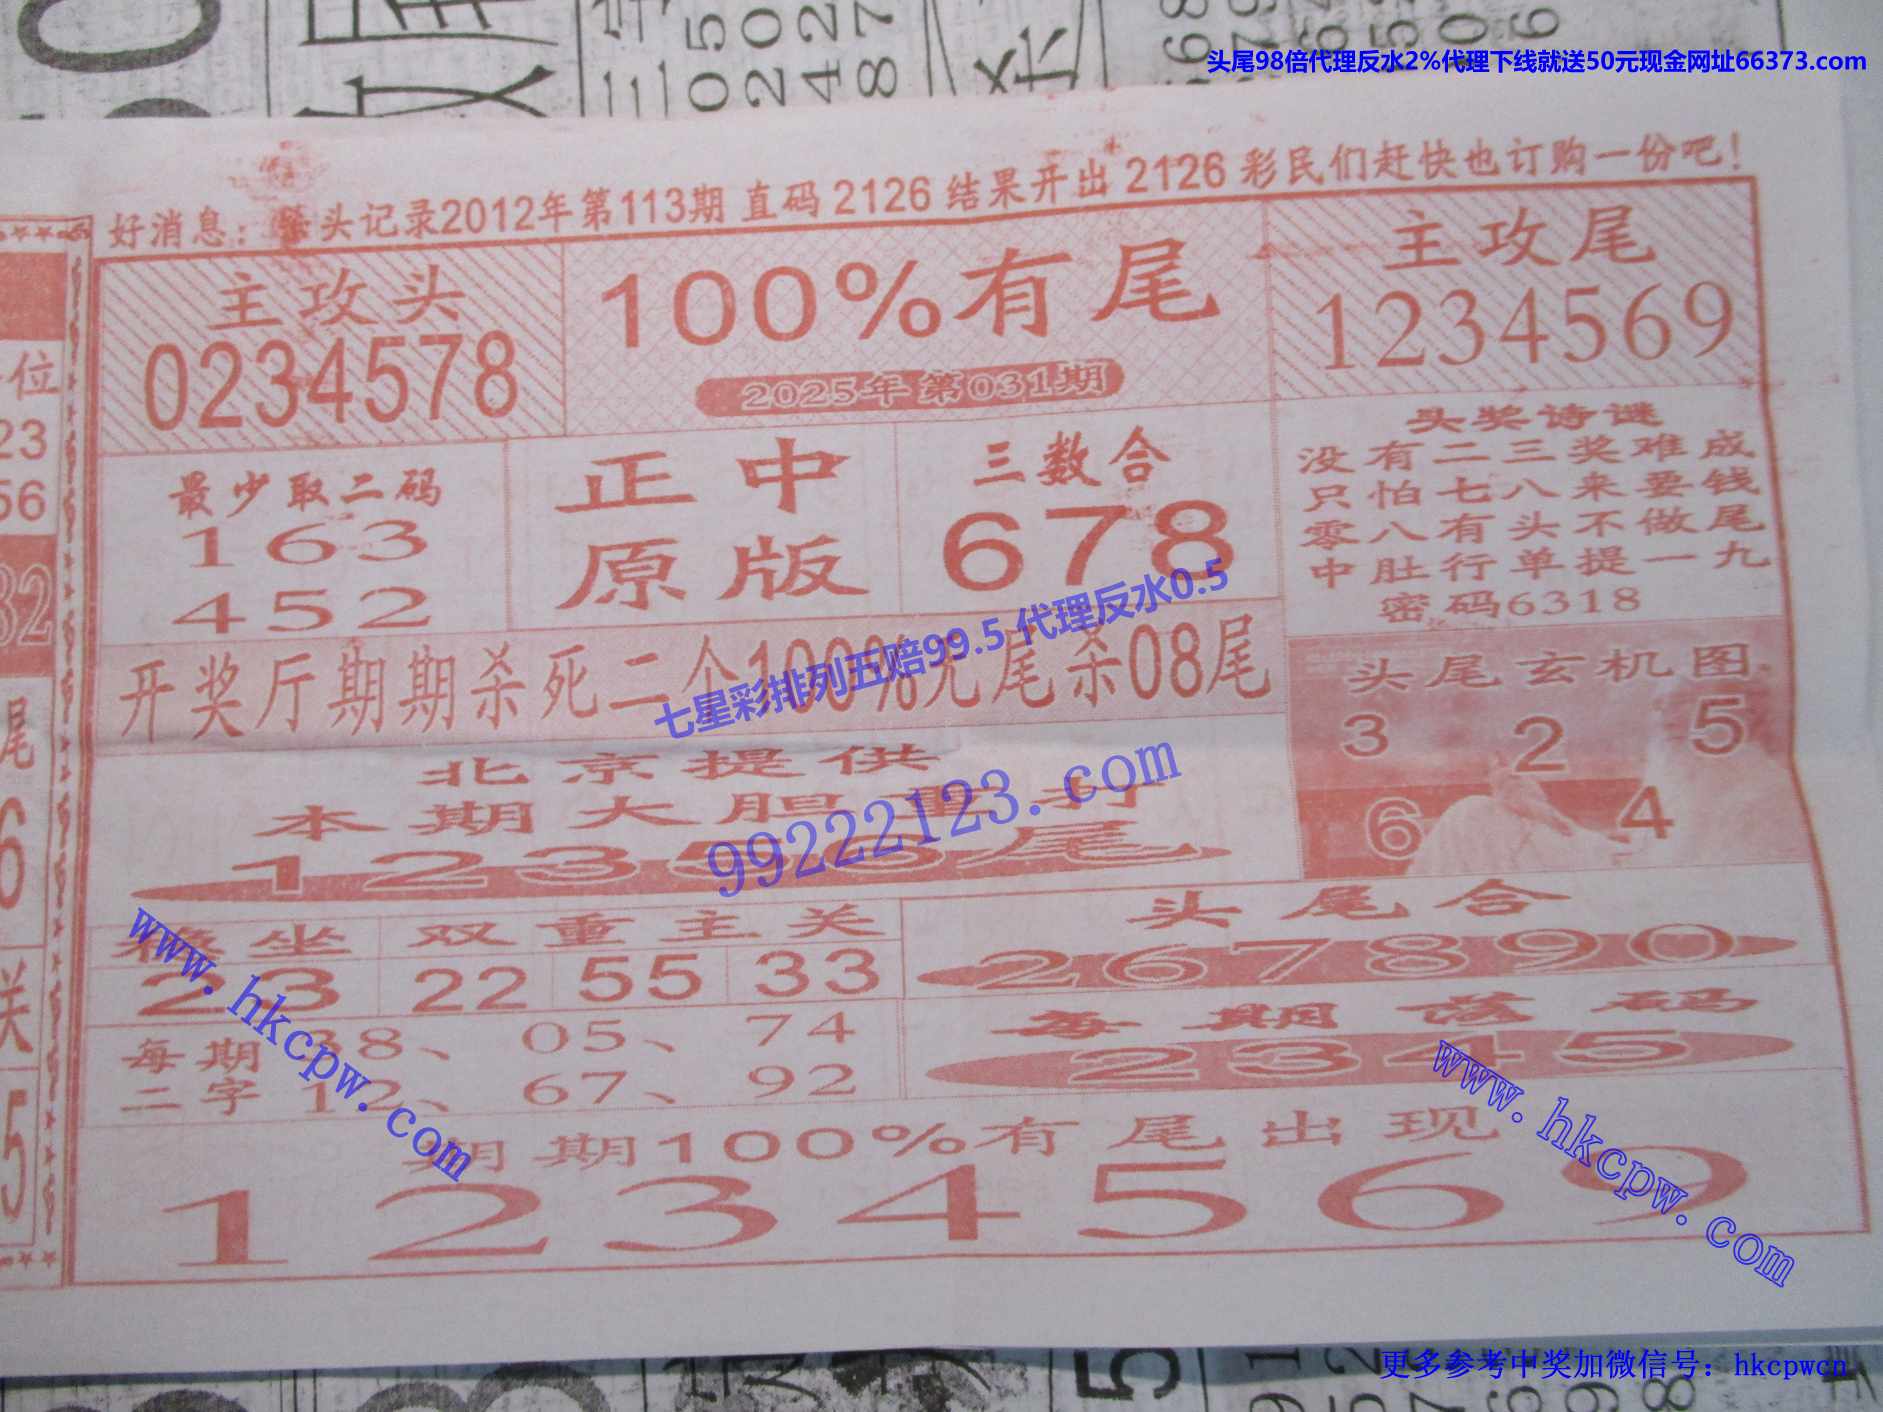 头尾98倍代理反水2%代理下线就送50元现金网址66373.com
好消息: 头记录2012年第113期 直码 2126 结果开出 2126 彩民们赶快也订购一份吧!
主攻头
0234578
100%有尾
2025年第031期
主攻尾
1234569
最少取二码
163
452
正中
原版
三数合
678
头奖诗谜
没有二三奖难成
只怕七八来要钱
零八有头不做尾
中肚行单提一九
密码6318
开奖厅期期杀死二个100%无尾杀08尾
七星彩排列五赔99.5 代理反水0.5
头尾玄机图
3 2 5
6 4
北京提供
本期大胆重打
12356尾
99222123.com
稳坐
23
双重主关
22 55 33
头尾合
267890
每期二字
38、 05、 74
12、 67、 92
每期落码
2345
www.hkcpw.com
www.hkcpw.com
期期100%有尾出现
1234569
更多参考中奖加微信号: hkcpwcn
位
23
56
32
尾
6
关
5